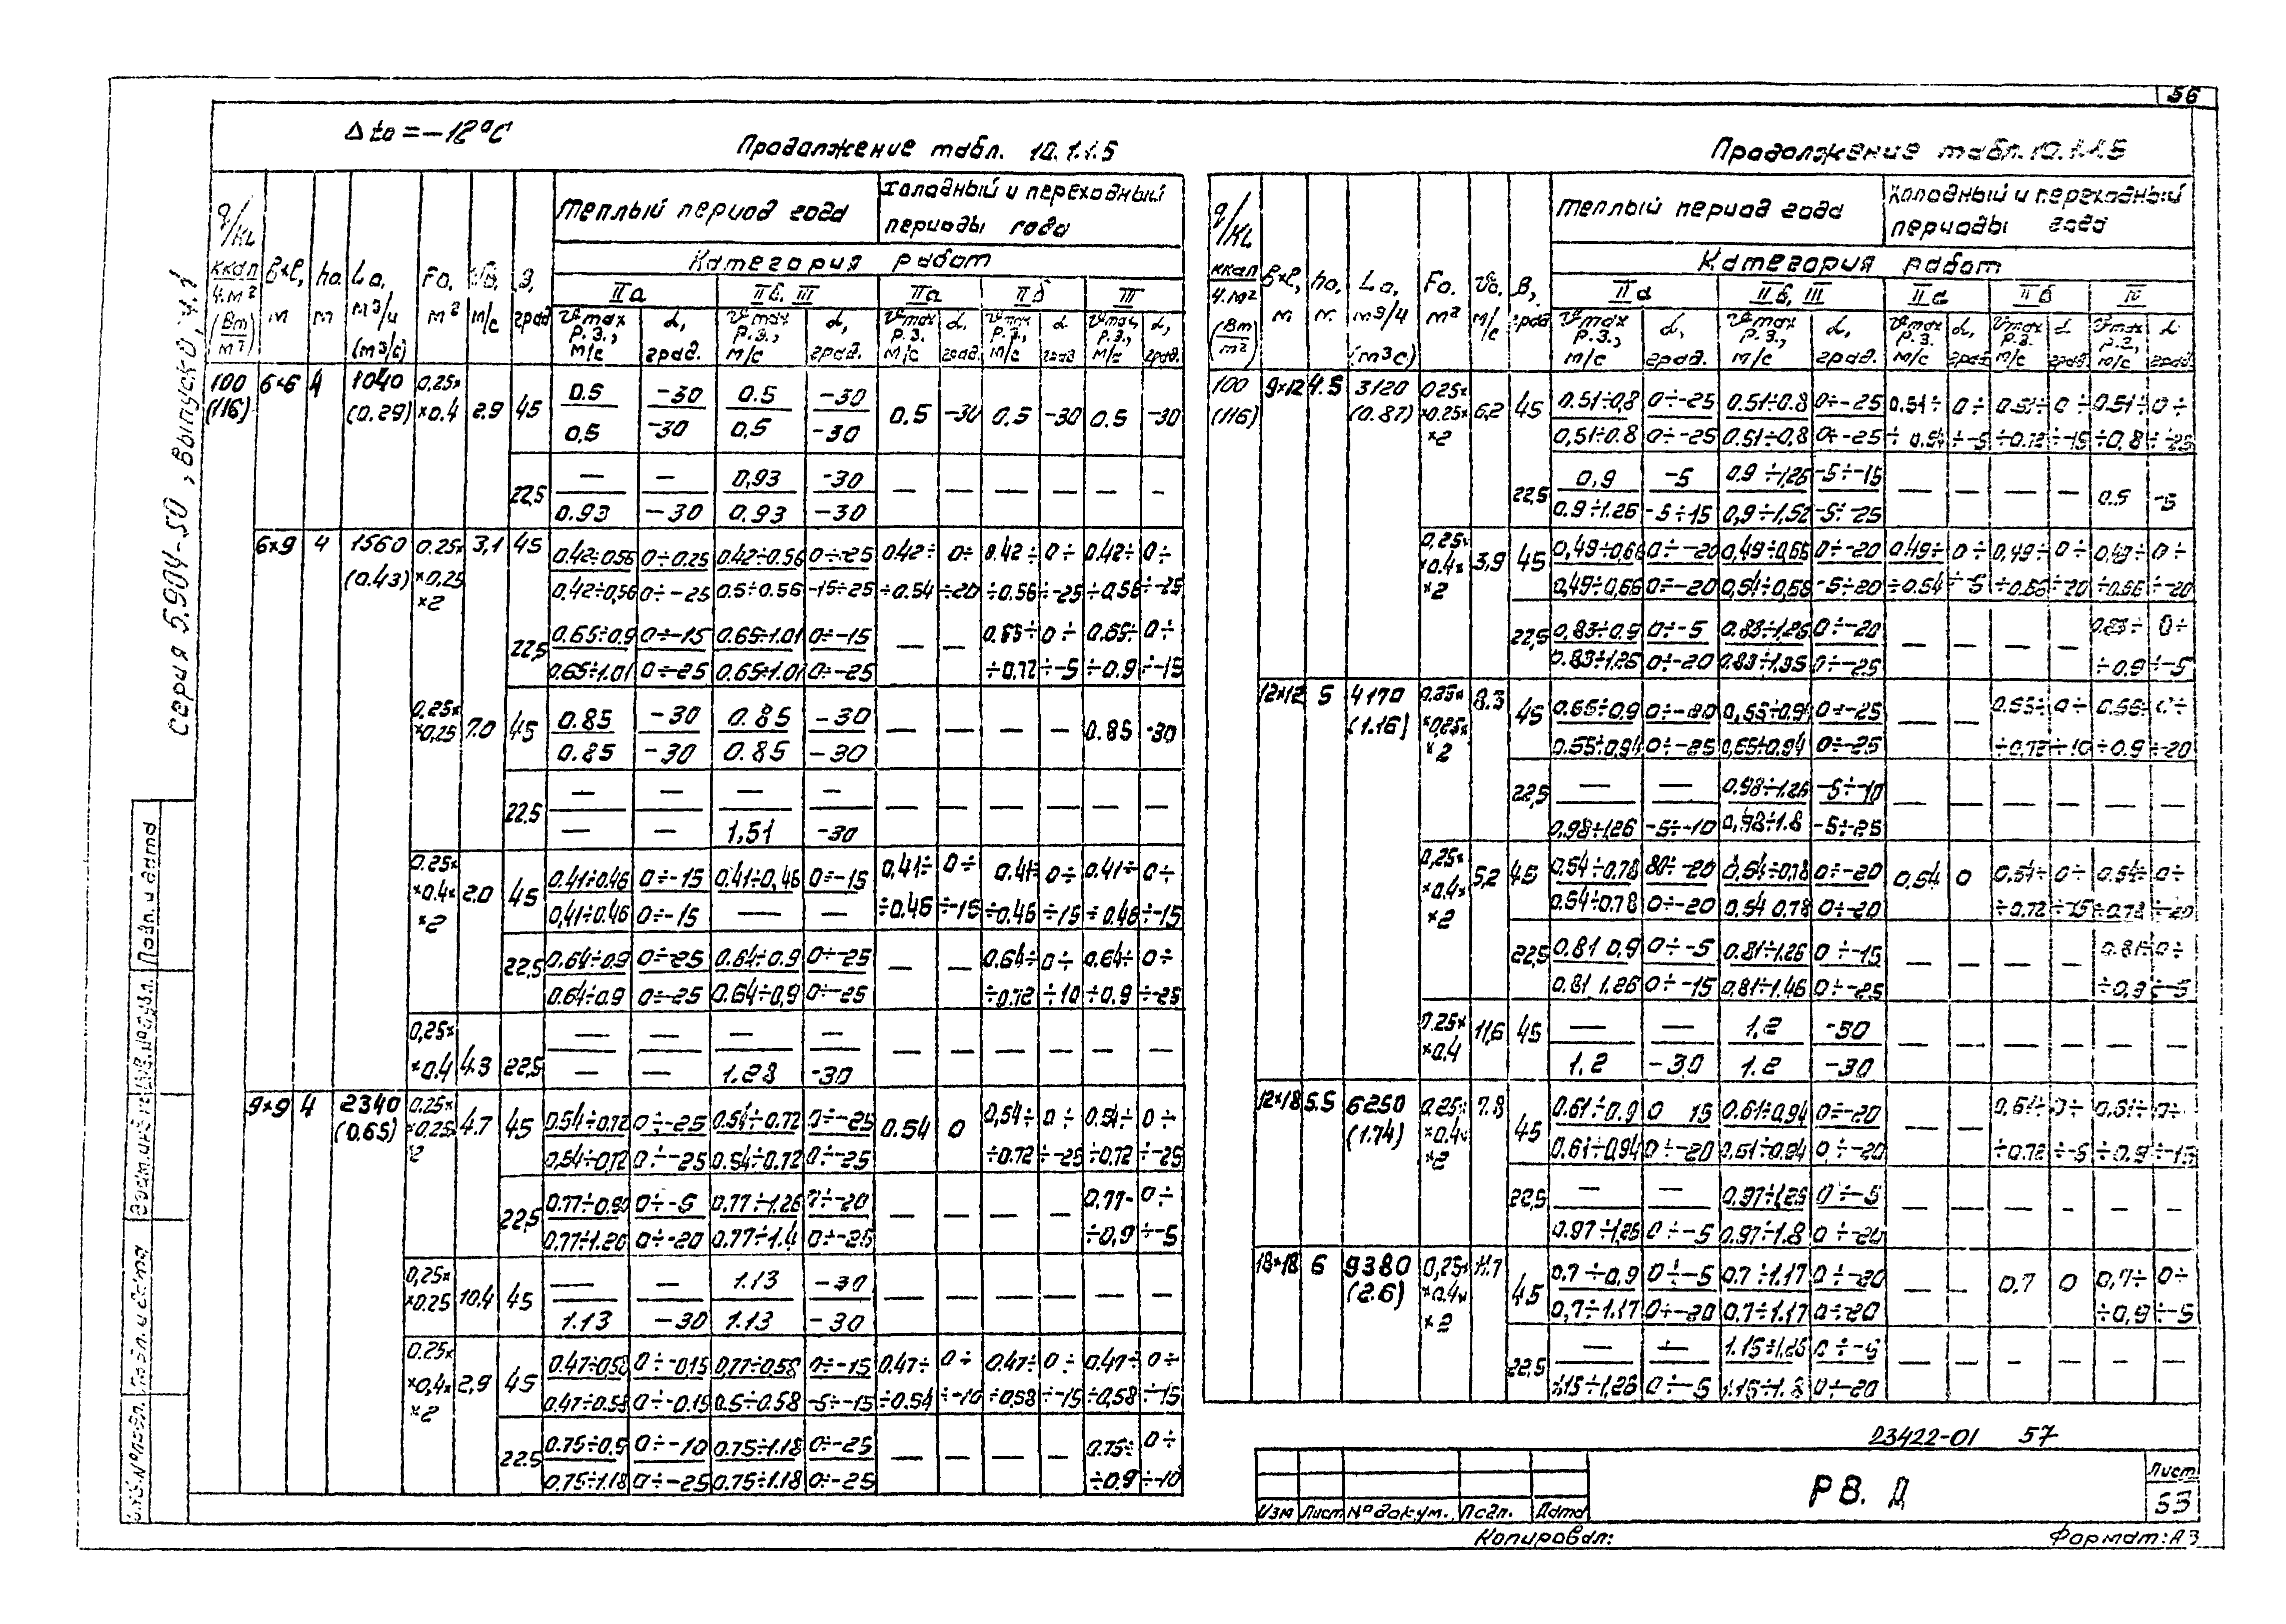 56
Δtо = −12°С
Продолжение табл. 10.1.1.5
Продолжение табл. 10.1.1.5
серия 5.904-50, выпуск 0, ч.1
q/KL
ккал/ч.м²
(Вт/м²)
в×l, м
hо, м
Lо, м³/ч (м³/с)
Fо, м²
Vо, м/с
β, град
Теплый период года
холодный и переходный периоды года
Категория работ
IIа IIб, III IIа IIб III
vmax р.з., м/с α, град.
100 (116) 6×6 4 1040 (0.29) 0,25× ×0.4 2.9 45
0.5 −30 0.5 −30
0,5 −30 0,5 −30
0.5 −30 0.5 −30 0.5 −30
22,5
— — 0,93 −30
0.93 −30 0.93 −30
— — — — — —
6×9 4 1560 (0.43) 0.25× ×0,25 ×2 3,1 45
0.42÷0.56 0÷0.25 0.42÷0.56 0÷-25 0.42÷ 0÷ 0.42÷ 0÷ 0.42÷ 0÷
0.42÷0,56 0÷-25 0.5÷0.56 -15÷25 ÷0.54 ÷20 ÷0.56 ÷-25 ÷0.56 ÷-25
22,5
0.65÷0.9 0÷-15 0.65÷1.01 0÷-15
0.65÷1.01 0÷-25 0.65÷1.01 0÷-25
— — 0.65÷ 0÷ 0.65÷ 0÷
÷0.72 ÷-5 ÷0.9 ÷-15
0.25× ×0,25 7.0 45
0.85 −30 0.85 −30
0.85 −30 0.85 −30
— — — — 0.85 -30
22.5
— — — —
— — 1,51 -30
— — — — — —
0.25× ×0.4× ×2 2.0 45
0.41÷0.46 0÷-15 0.41÷0,46 0÷-15 0,41÷ 0÷ 0.41÷ 0÷ 0.41÷ 0÷
0,41÷0.46 0÷-15 — — ÷0.46 ÷-15 ÷0.46 ÷15 ÷0.46 ÷-15
22,5
0.64÷0.9 0÷-25 0.64÷0.9 0÷-25
0.64÷0.9 0÷-25 0.64÷0,9 0÷-25
— — 0.64÷ 0÷ 0.64÷ 0÷
÷0.72 ÷10 ÷0.9 ÷-25
0,25× ×0.4 4.3 22,5
— — — —
— — 1.28 -30
— — — — — —
9×9 4 2340 (0.65) 0.25× ×0.25× ×2 4.7 45
0.54÷0.72 0÷-25 0.54÷0.72 0÷-25 0.54 0 0,54÷ 0÷ 0.54÷ 0÷
0,54÷0,72 0÷-25 0.54÷0.72 0÷-25 ÷0.72 ÷-25 ÷0.72 ÷-25
22,5
0.77÷0.90 0÷-5 0.77÷1.26 0÷-20
0,77÷1.26 0÷-20 0.77÷1.4 0÷-25
— — — — 0.77- 0÷
÷0,9 ÷-5
0,25× ×0.25 10,4 45
— — 1.13 −30
1.13 −30 1.13 −30
— — — — — —
0.25× ×0,4× ×2 2,9 45
0.47÷0.58 0÷-0,15 0,77÷0.58 0÷-15 0.47÷ 0÷ 0.47÷ 0÷ 0.47÷ 0÷
0.47÷0.58 0÷-0.15 0.5÷0.58 -5÷-15 ÷0.54 ÷-10 ÷0,58 ÷-15 ÷0,58 ÷-15
22.5
0.75÷0.9 0÷-10 0.75÷1.18 0÷-25
0.75÷1.18 0÷-25 0.75÷1.18 0÷-25
— — — — 0.75÷ 0÷
÷0.9 ÷-10
q/KL
ккал/ч.м²
(Вт/м²)
в×l, м
hо, м
Lо, м³/ч (м³с)
Fо. м²
Vо, м/с
β, град
Теплый период года
Холодный и переходный периоды года
Категория работ
IIа IIб, III IIа IIб
vmax р.з., м/с α, град.
100 (116) 9×12 4.5 3120 (0.87) 0,25× ×0.25× ×2 6,2 45
0.51÷0,8 0÷-25 0.51÷0.8 0÷-25 0.51÷ 0÷ 0.51÷ 0÷ 0.51÷ 0÷
0,51÷0.8 0÷-25 0.51÷0,8 0÷-25 ÷0.54 ÷-5 ÷0.72 ÷-15 ÷0,8 ÷-25
22,5
0,9 −5 0.9÷1,26 -5÷-15
0.9÷1.26 -5÷15 0,9÷1,52 -5÷-25
— — — — 0.5 -5
0,25× ×0.4× ×2 3,9 45
0,49÷0,66 0÷-20 0,49÷0,66 0÷-20 0.49÷ 0÷ 0,49÷ 0÷ 0,49÷ 0÷
0,49÷0,66 0÷-20 0,54÷0,66 -5÷20 ÷0.54 ÷-5 ÷0.66 ÷-20 ÷0.66 ÷-20
22,5
0,83÷0.9 0÷-5 0.83÷1,26 0÷-20
0.83÷1,26 0÷-20 0.83÷1,35 0÷-25
— — — — 0.83÷ 0÷
÷0.9 ÷-5
12×12 5 4170 (1.16) 0,25× ×0,25× ×2 8.3 45
0.65÷0.9 0÷-20 0,65÷0.94 0÷-25
0.65÷0,94 0÷-25 0,65÷0.94 0÷-25
— — 0.65÷ 0÷ 0.65÷ 0÷
÷0.72 ÷10 ÷0.9 ÷-20
22,5
— — 0.98÷1.26 -5÷-10
0,98÷1.26 -5÷-10 0,98÷1.8 -5÷-25
— — — — — —
0,25× ×0.4× ×2 5,2 45
0,54÷0,78 80÷-20 0,54÷0,78 0÷-20 0,54 0 0.54÷ 0÷ 0.54÷ 0÷
0.54÷0.78 0÷-20 0.54 0.78 0÷-20 ÷0.72 ÷-15 ÷0.78 ÷-20
22,5
0.81 0,9 0÷-5 0.81÷1.26 0÷-15
0.81 1.26 0÷-15 0,81÷1.46 0÷-25
— — — — 0.81÷ 0÷
÷0,9 ÷-5
0.25× ×0.4 11,6 45
— — 1,2 -30
1,2 −30 1.2 −30
— — — — — —
12×18 5.5 6250 (1.74) 0,25× ×0.4× ×2 7.8 45
0.61÷0.9 0 15 0.61÷0,94 0÷-20
0.61÷0,94 0÷-20 0,61÷0.94 0÷-20
— — 0,61÷ 0÷ 0,61÷ 0÷
÷0.72 ÷-5 ÷0.9 ÷-15
22,5
— — 0.97÷1,26 0÷-5
0.97÷1,26 0÷-5 0.97÷1.8 0÷-20
— — — — — —
18×18 6 9380 (2.6) 0,25× ×0.4× ×2 11.7 45
0.7÷0,9 0÷-5 0.7÷1.17 0÷-20
0,7÷1.17 0÷-20 0,7÷1.17 0÷-20
— — 0.7 0 0,7÷ 0÷
÷0,9 ÷-5
22,5
— — 1.15÷1,26 0÷-5
1.15÷1,26 0÷-5 1.15÷1.8 0÷-20
— — — — — —
23422-01 57
Изм Лист № докум. Подп. Дата
РВ. Д
Лист
53
Копировал:
Формат: А3
Подп. и дата
Подп. и дата
Инв.№ подл.